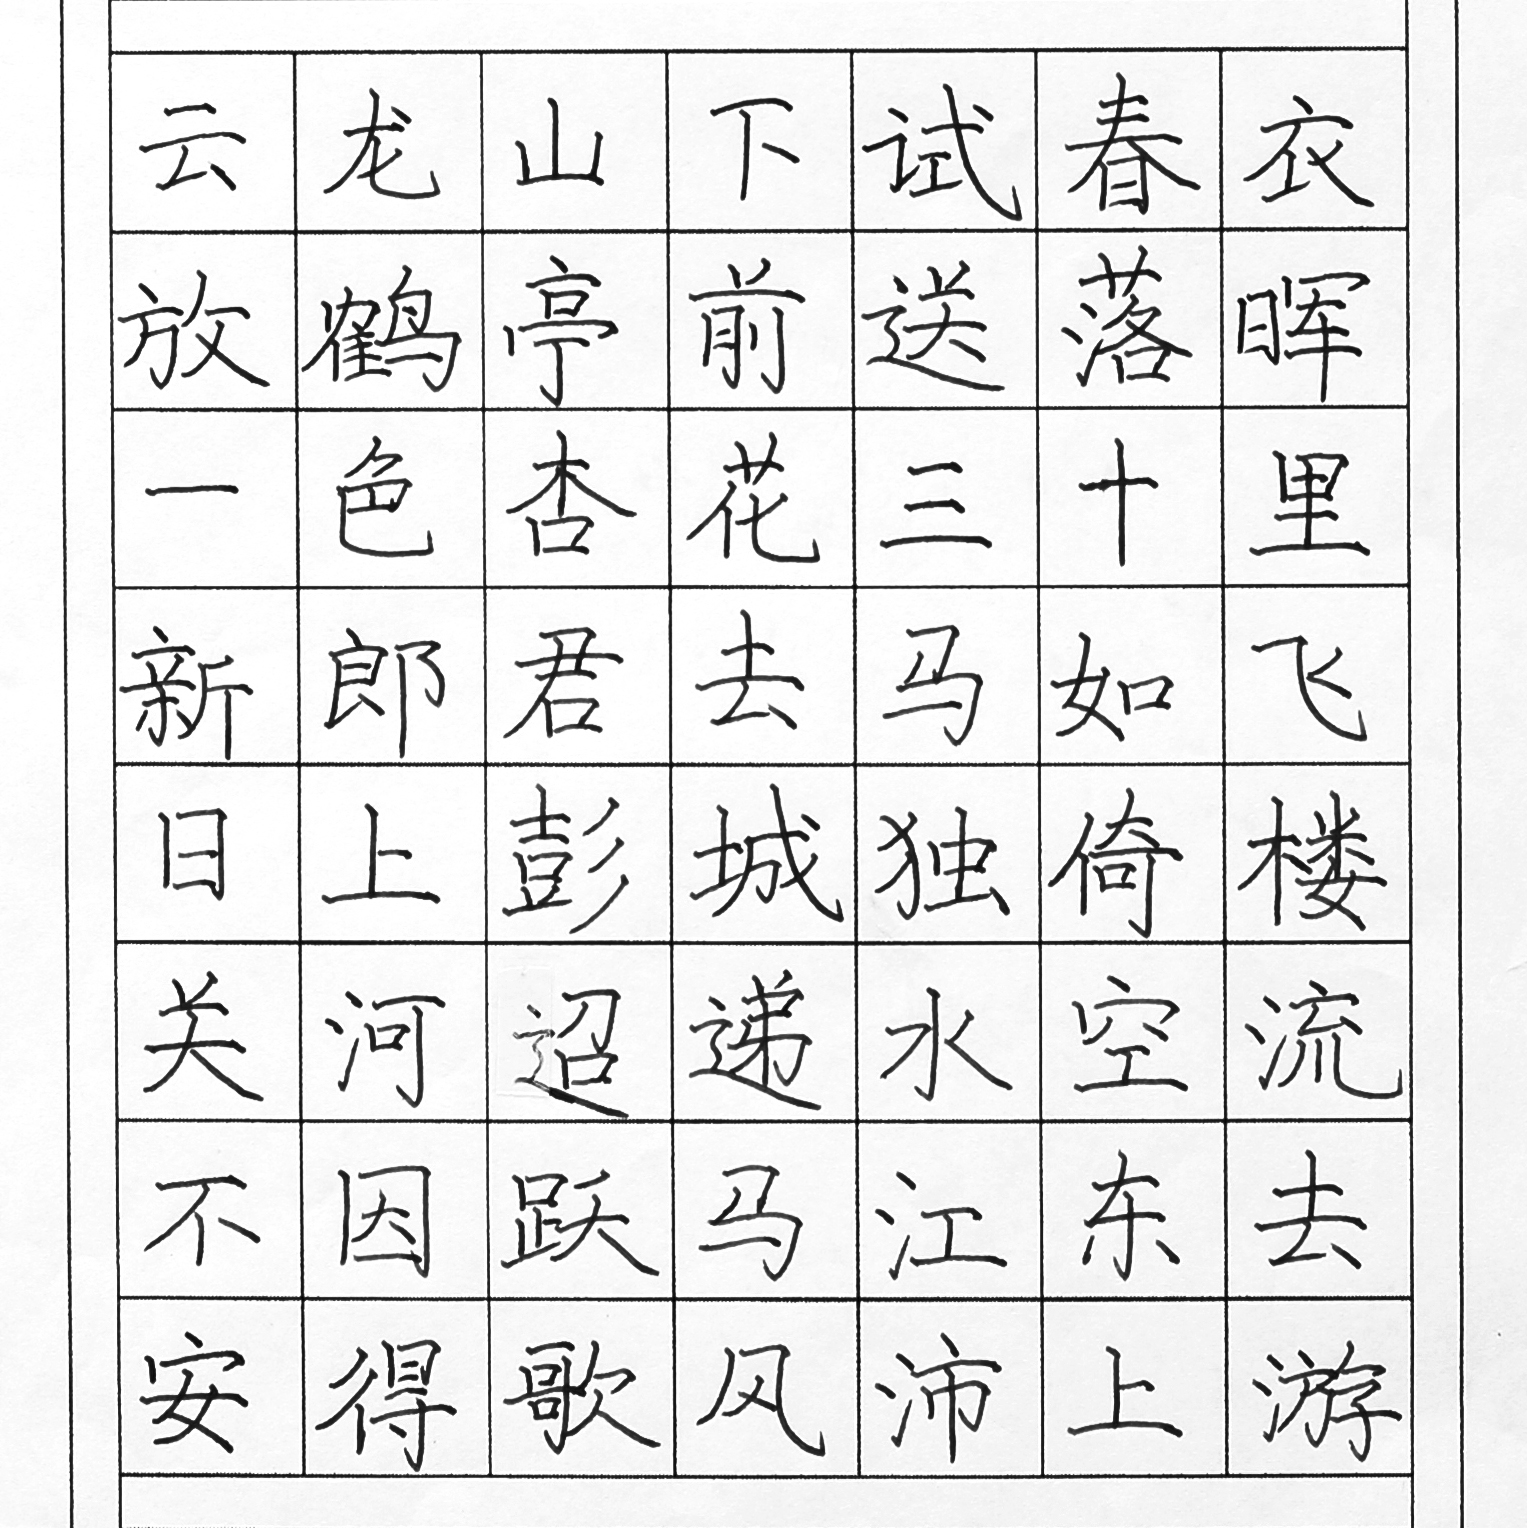 云龙山下试春衣
放鹤亭前送落晖
一色杏花三十里
新郎君去马如飞
日上彭城独倚楼
关河迢递水空流
不因跃马江东去
安得歌风沛上游